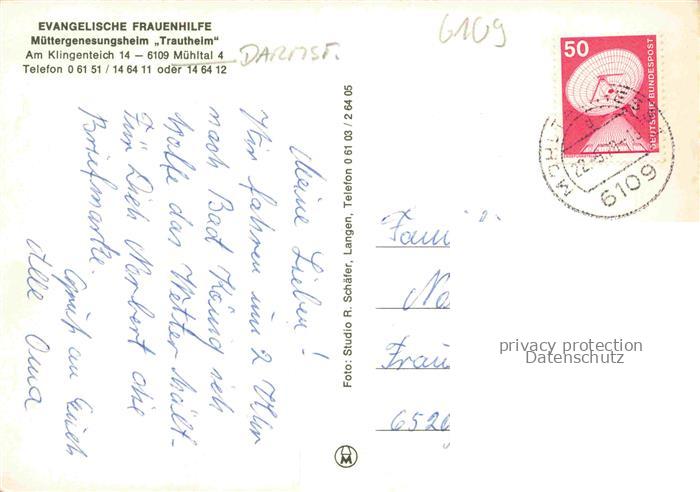 EVANGELISCHE FRAUENHILFE
Müttergenesungsheim „Trautheim"
Am Klingenteich 14 – 6109 Mühltal 4
Telefon 0 61 51 / 14 64 11 oder 14 64 12
DARMST.
6109
50
DEUTSCHE BUNDESPOST
6109
Meine Lieben!
Wir fahren um 2 Uhr
nach Bad König ich
hoffe das Wetter hält.
Für Dich Norbert die
Briefmarke.
Gruß an Euch
Alle Oma
Foto: Studio R. Schäfer, Langen, Telefon 0 61 03 / 2 64 05
Fam
No
Frau
6520
privacy protection
Datenschutz
M